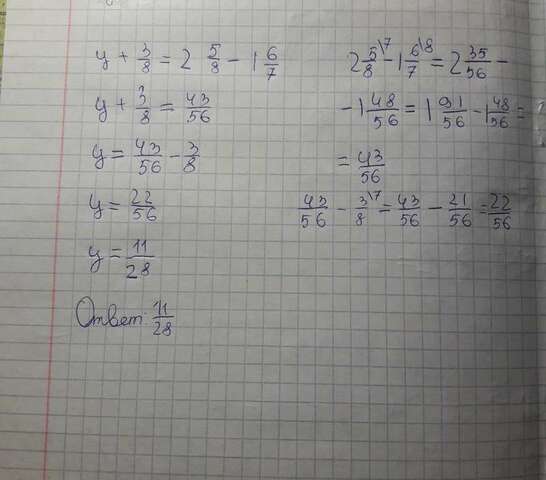 y + 3/8 = 2 5/8 - 1 6/7
y + 3/8 = 43/56
y = 43/56 - 3/8
y = 22/56
y = 11/28
Ответ: 11/28
2 5/8 \7 - 1 6/7 \8 = 2 35/56 -
- 1 48/56 = 1 91/56 - 1 48/56 =
= 43/56
43/56 - 3/8 \7 = 43/56 - 21/56 = 22/56